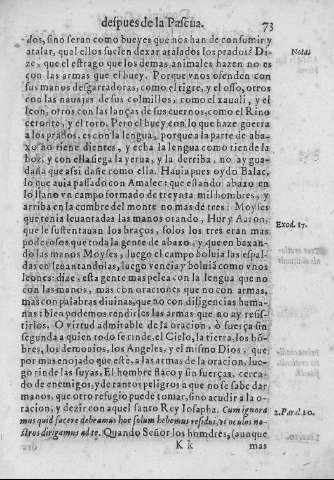 despues de la Pascua. 73
dos, sino seran como bueyes que nos han de consumir y
atalar, qual ellos suelen dexar atalados los prados? Di-
ze, que el estrago que los demas animales hazen no es
con las armas que el buey. Porque vnos ofenden con
sus manos desgarradoras, como el tigre, y el osso, otros
con las nauajas de sus colmillos, como el xauali, y el
leon, otros con las lanças de sus cuernos, como el Rino
ceronte, y el toro. Pero el buey con lo que haze guerra
a los prados, es con la lengua, porque a la parte de aba-
xo no tiene dientes, y echa la lengua como tiende la
hoz, y con ella siega la yerua, y la derriba, no ay gua-
daña que assi dañe como ella. Hauia pues oydo Balac,
lo que auia passado con Amalec: que estando abaxo en
lo llano vn campo formado de treynta mil hombres, y
arriba en la cumbre del monte no mas de tres: Moyses
que tenia leuantadas las manos orando, Hur y Aaron,
que le sustentauan los braços, solos los tres eran mas
poderosos que toda la gente de abaxo, y que en baxan-
do las manos Moyses, luego el campo boluia las espal-
das en leuantandolas, luego vencia y boluia como vnos
leones: dize, esta gente mas pelea con la lengua que no
con las manos, mas con oraciones que no con armas,
mas con palabras diuinas, que no con diligencias huma-
nas: bien podemos rendirles las armas que no ay resis-
tirlos. O virtud admirable de la oracion, ò fuerça sin
segunda a quien todo se rinde, el Cielo, la tierra, los hō-
bres, los demonios, los Angeles, y el mismo Dios, que
por mas enojado que este, a las armas de la oracion, lue-
go rinde las suyas. El hombre flaco y sin fuerças, cerca-
do de enemigos, y de tantos peligros a que no se sabe dar
manos, que otro refugio puede tomar, sino acudir a la o-
racion, y dezir con aquel santo Rey Iosapha. Cum ignora
mus quid facere debeamus hoc solum habemus residui, vt oculos no-
stros dirigamus ad te. Quando Señor los hombres, (aunque
K k mas
Nota.
Exod. 17.
2. Paral. 20.